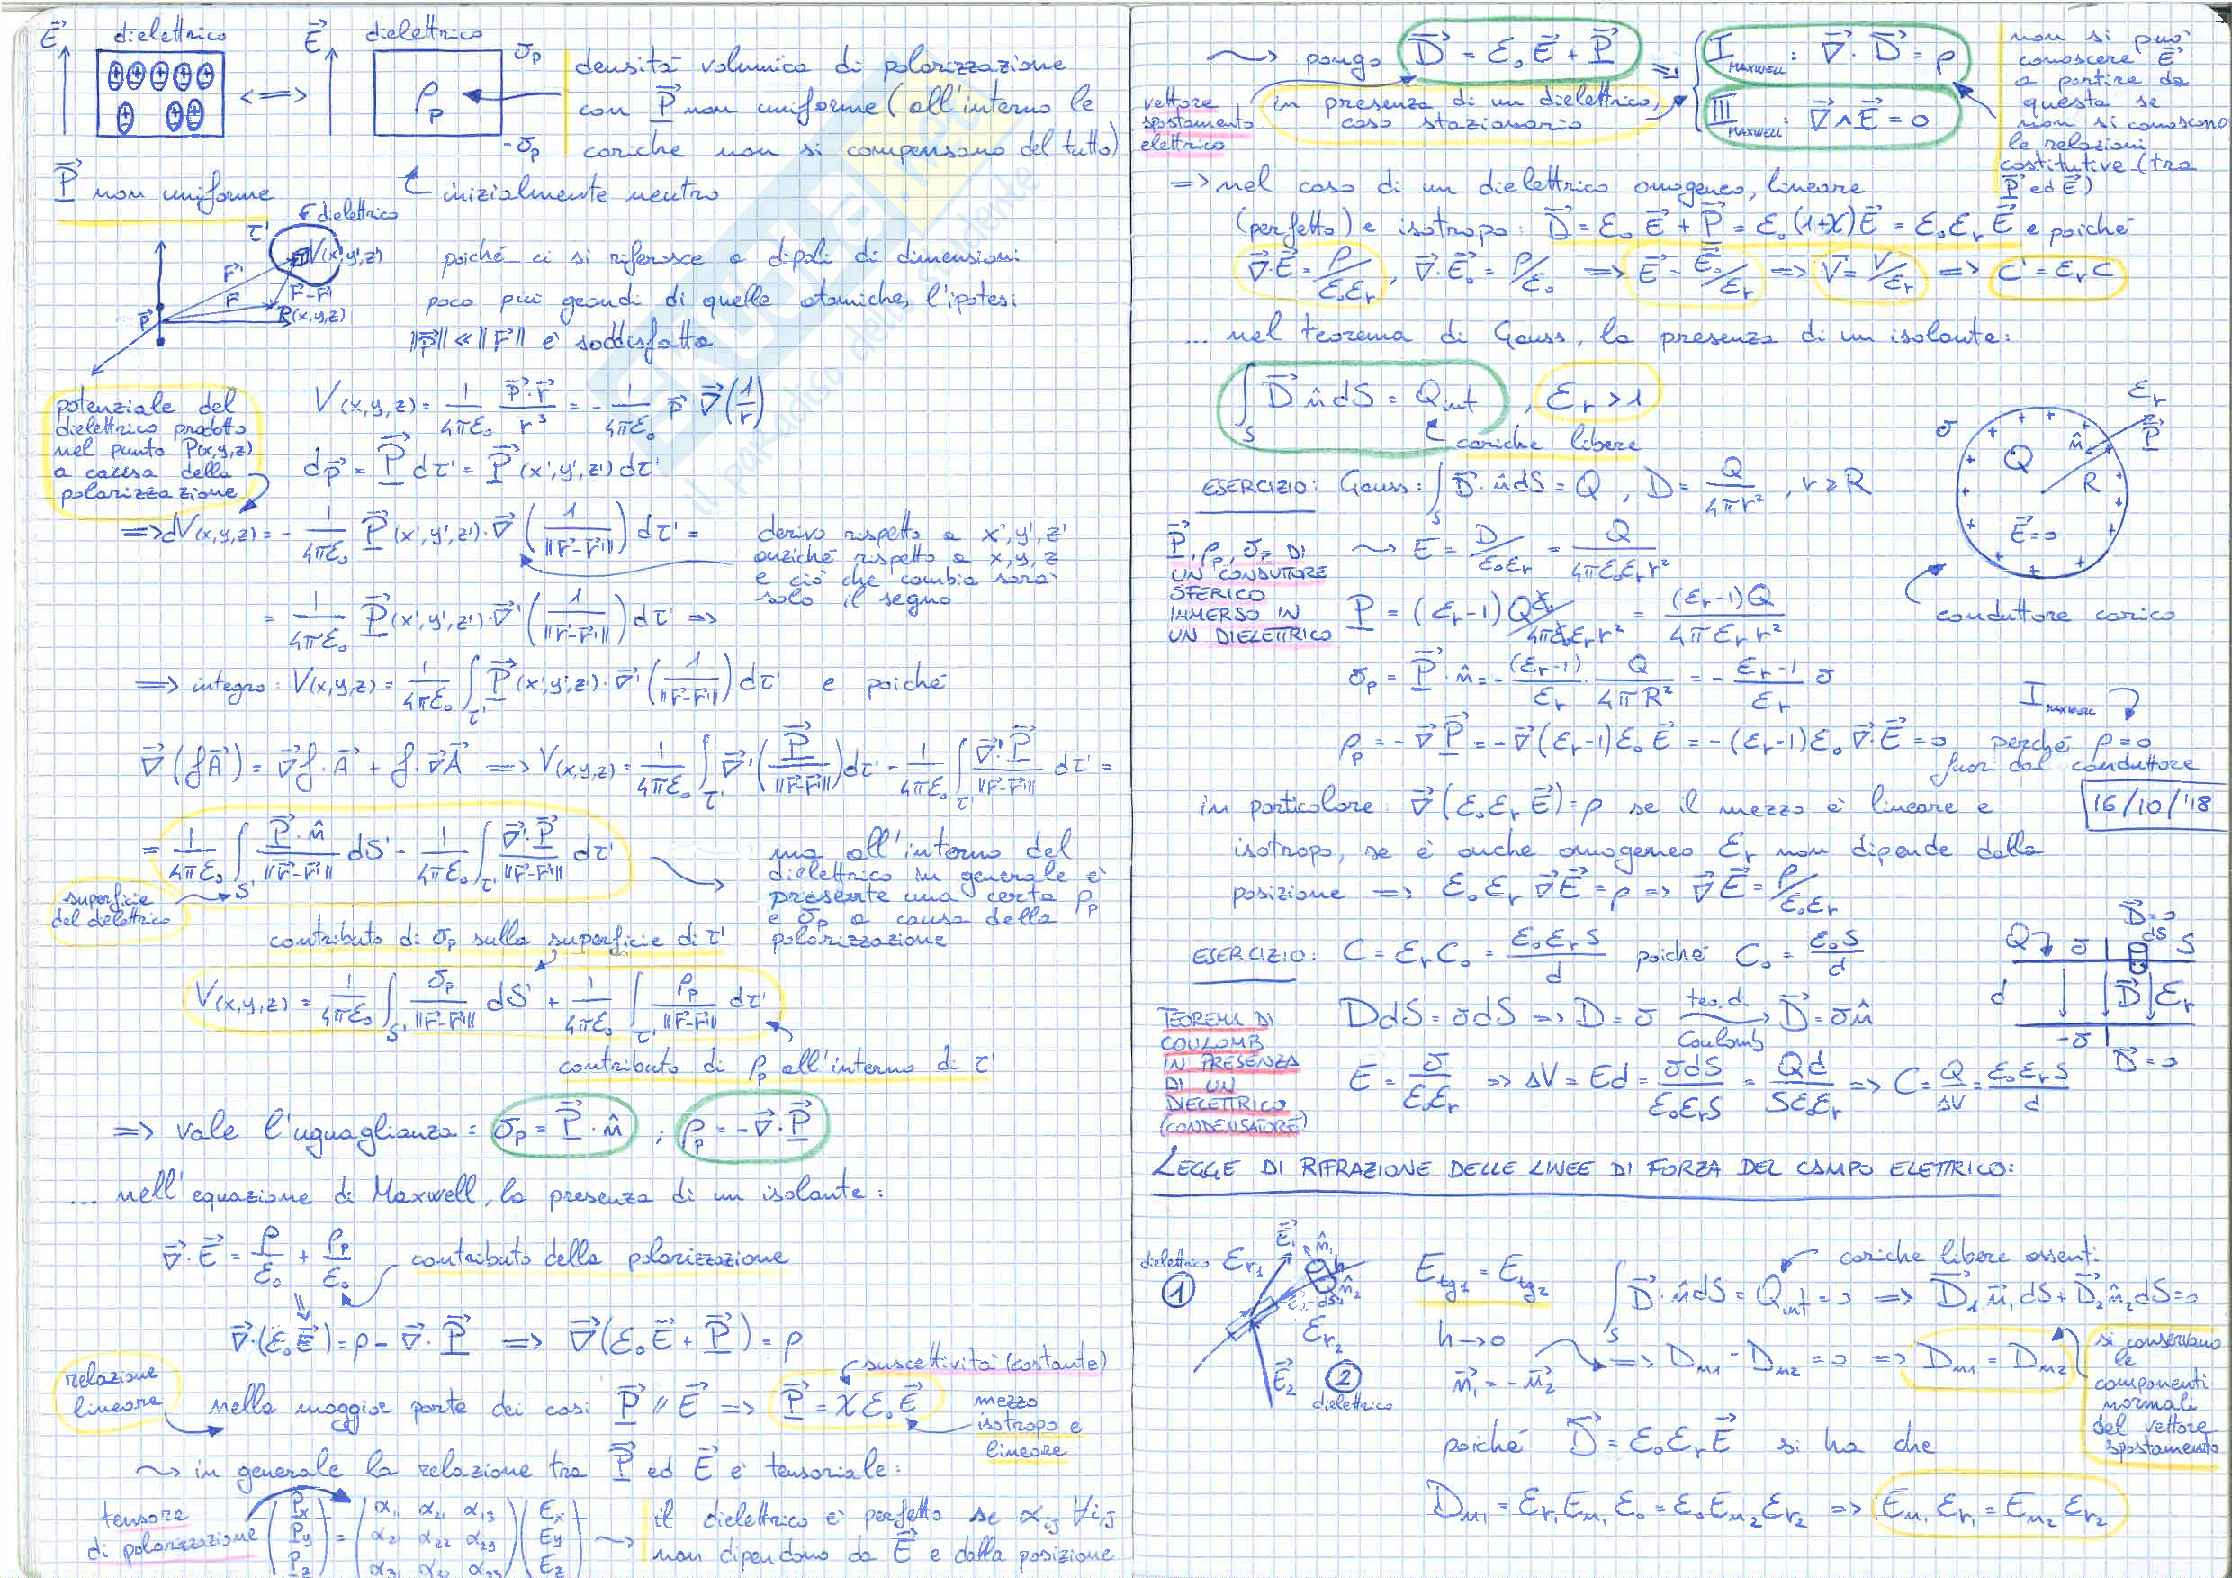 E⃗ dielettrico E⃗ dielettrico
σₚ
ρₚ
-σₚ
densità volumica di polarizzazione
con P⃗ non uniforme (all'interno le
cariche non si compensano del tutto)
P⃗ non uniforme
inizialmente neutro
dielettrico
τ'
V(x',y',z')
r⃗'
r⃗
r⃗-r⃗'
P(x,y,z)
p⃗
poiché ci si riferisce a dipoli di dimensioni
poco più grandi di quelle atomiche, l'ipotesi
||p⃗|| << ||r⃗|| è soddisfatta
potenziale del
dielettrico prodotto
nel punto P(x,y,z)
a causa della
polarizzazione
V(x,y,z) = 1/4πε₀ p⃗·r⃗/r³ = - 1/4πε₀ p⃗ ∇⃗(1/r)
dp⃗ = P⃗ dτ' = P⃗(x',y',z') dτ'
=> dV(x,y,z) = - 1/4πε₀ P⃗(x',y',z')·∇⃗(1/||r⃗-r⃗'||) dτ' =
derivo rispetto a x',y',z'
anziché rispetto a x,y,z
e ciò che cambia sarà
solo il segno
= 1/4πε₀ P⃗(x',y',z')·∇⃗'(1/||r⃗-r⃗'||) dτ' =>
=> integro: V(x,y,z) = 1/4πε₀ ∫τ' P⃗(x',y',z')·∇⃗'(1/||r⃗-r⃗'||) dτ' e poiché
∇⃗(fA⃗) = ∇⃗f·A⃗ + f·∇⃗A⃗ => V(x,y,z) = 1/4πε₀ ∫τ' ∇⃗'(P⃗/||r⃗-r⃗'||) dτ' - 1/4πε₀ ∫τ' ∇⃗'·P⃗/||r⃗-r⃗'|| dτ' =
= 1/4πε₀ ∫S' P⃗·n̂/||r⃗-r⃗'|| dS' - 1/4πε₀ ∫τ' ∇⃗'·P⃗/||r⃗-r⃗'|| dτ'
superficie
del dielettrico
ma all'interno del
dielettrico in generale è
presente una certa ρₚ
e σₚ a causa della
polarizzazione
contributo di σₚ sulla superficie di τ'
V(x,y,z) = 1/4πε₀ ∫S' σₚ/||r⃗-r⃗'|| dS' + 1/4πε₀ ∫τ' ρₚ/||r⃗-r⃗'|| dτ'
contributo di ρₚ all'interno di τ'
=> vale l'uguaglianza: σₚ = P⃗·n̂ ; ρₚ = -∇⃗·P⃗
... nell'equazione di Maxwell, la presenza di un isolante:
∇⃗·E⃗ = ρ/ε₀ + ρₚ/ε₀ contributo della polarizzazione
∇⃗·(ε₀E⃗) = ρ - ∇⃗·P⃗ => ∇⃗(ε₀E⃗ + P⃗) = ρ
suscettività (costante)
relazione
lineare
nella maggior parte dei casi P⃗ // E⃗ => P⃗ = χε₀E⃗
mezzo
isotropo e
lineare
in generale la relazione tra P⃗ ed E⃗ è tensoriale:
tensore
di polarizzazione
(Px Py Pz) = (α₁ α₂₁ α₁₃ α₂₁ α₂₂ α₂₃ α₃₁ α₃₂ α₃₃)(Ex Ey Ez)
il dielettrico è perfetto se αij ∀i,j
non dipendono da E⃗ e dalla posizione
pongo D⃗ = ε₀E⃗ + P⃗ => { I MAXWELL : ∇⃗·D⃗ = ρ
III MAXWELL : ∇⃗∧E⃗ = 0
vettore
spostamento
elettrico
in presenza di un dielettrico,
caso stazionario
non si può
conoscere E⃗
a partire da
questa se
non si conoscono
le relazioni
costitutive (tra
P⃗ ed E⃗)
=> nel caso di un dielettrico omogeneo, lineare
(perfetto) e isotropo: D⃗ = ε₀E⃗ + P⃗ = ε₀(1+χ)E⃗ = ε₀εᵣE⃗ e poiché
∇⃗·E⃗ = ρ/ε₀εᵣ , ∇⃗·E⃗₀ = ρ/ε₀ => E⃗ = E⃗₀/εᵣ => V = V/εᵣ => C' = εᵣC
... nel teorema di Gauss, la presenza di un isolante:
∫S D⃗ n̂ dS = Qint , εᵣ > 1
cariche libere
εᵣ
σ
Q
n̂
P⃗
R
E⃗=0
conduttore carico
ESERCIZIO: Gauss: ∫S D⃗·n̂dS = Q , D = Q/4πr² , r ≥ R
P⃗, ρₚ, σₚ DI
UN CONDUTTORE
SFERICO
IMMERSO IN
UN DIELETTRICO
E = D/ε₀εᵣ = Q/4πε₀εᵣr²
P = (εᵣ-1) Qε₀/4πε₀εᵣr² = (εᵣ-1)Q/4πεᵣr²
σₚ = P⃗·n̂ = - (εᵣ-1)/εᵣ · Q/4πR² = - εᵣ-1/εᵣ σ
I MAXWELL
ρₚ = -∇⃗P⃗ = -∇⃗(εᵣ-1)ε₀E⃗ = -(εᵣ-1)ε₀∇⃗·E⃗ = 0 perché ρ=0
fuori dal conduttore
in particolare: ∇⃗(ε₀εᵣE⃗) = ρ se il mezzo è lineare e
16/10/'18
isotropo, se è anche omogeneo εᵣ non dipende dalla
posizione => ε₀εᵣ∇⃗E⃗ = ρ => ∇⃗E⃗ = ρ/ε₀εᵣ
ESERCIZIO: C = εᵣC₀ = ε₀εᵣS/d poiché C₀ = ε₀S/d
D⃗=0
Q σ dS S
d D⃗ εᵣ
-σ
D⃗=0
TEOREMA DI
COULOMB
IN PRESENZA
DI UN
DIELETTRICO
(CONDENSATORE)
DdS = σdS => D = σ teo. di Coulomb D⃗ = σn̂
E = σ/ε₀εᵣ => ΔV = Ed = σdS/ε₀εᵣS = Qd/Sε₀εᵣ => C = Q/ΔV = ε₀εᵣS/d
LEGGE DI RIFRAZIONE DELLE LINEE DI FORZA DEL CAMPO ELETTRICO:
dielettrico
1
εᵣ₁
E⃗₁
n̂₁
h
n̂₂
dS
εᵣ₂
E⃗₂
2
dielettrico
Etg₁ = Etg₂
cariche libere assenti
∫S D⃗·n̂dS = Qint = 0 => D⃗₁n̂₁dS + D⃗₂n̂₂dS = 0
h→0
n⃗₁ = -n⃗₂
=> Dn₁ - Dn₂ = 0 => Dn₁ = Dn₂
si conservano
le
componenti
normali
del vettore
spostamento
poiché D⃗ = ε₀εᵣE⃗ si ha che
Dn₁ = εᵣ₁En₁ε₀ = ε₀En₂εᵣ₂ => En₁εᵣ₁ = En₂εᵣ₂